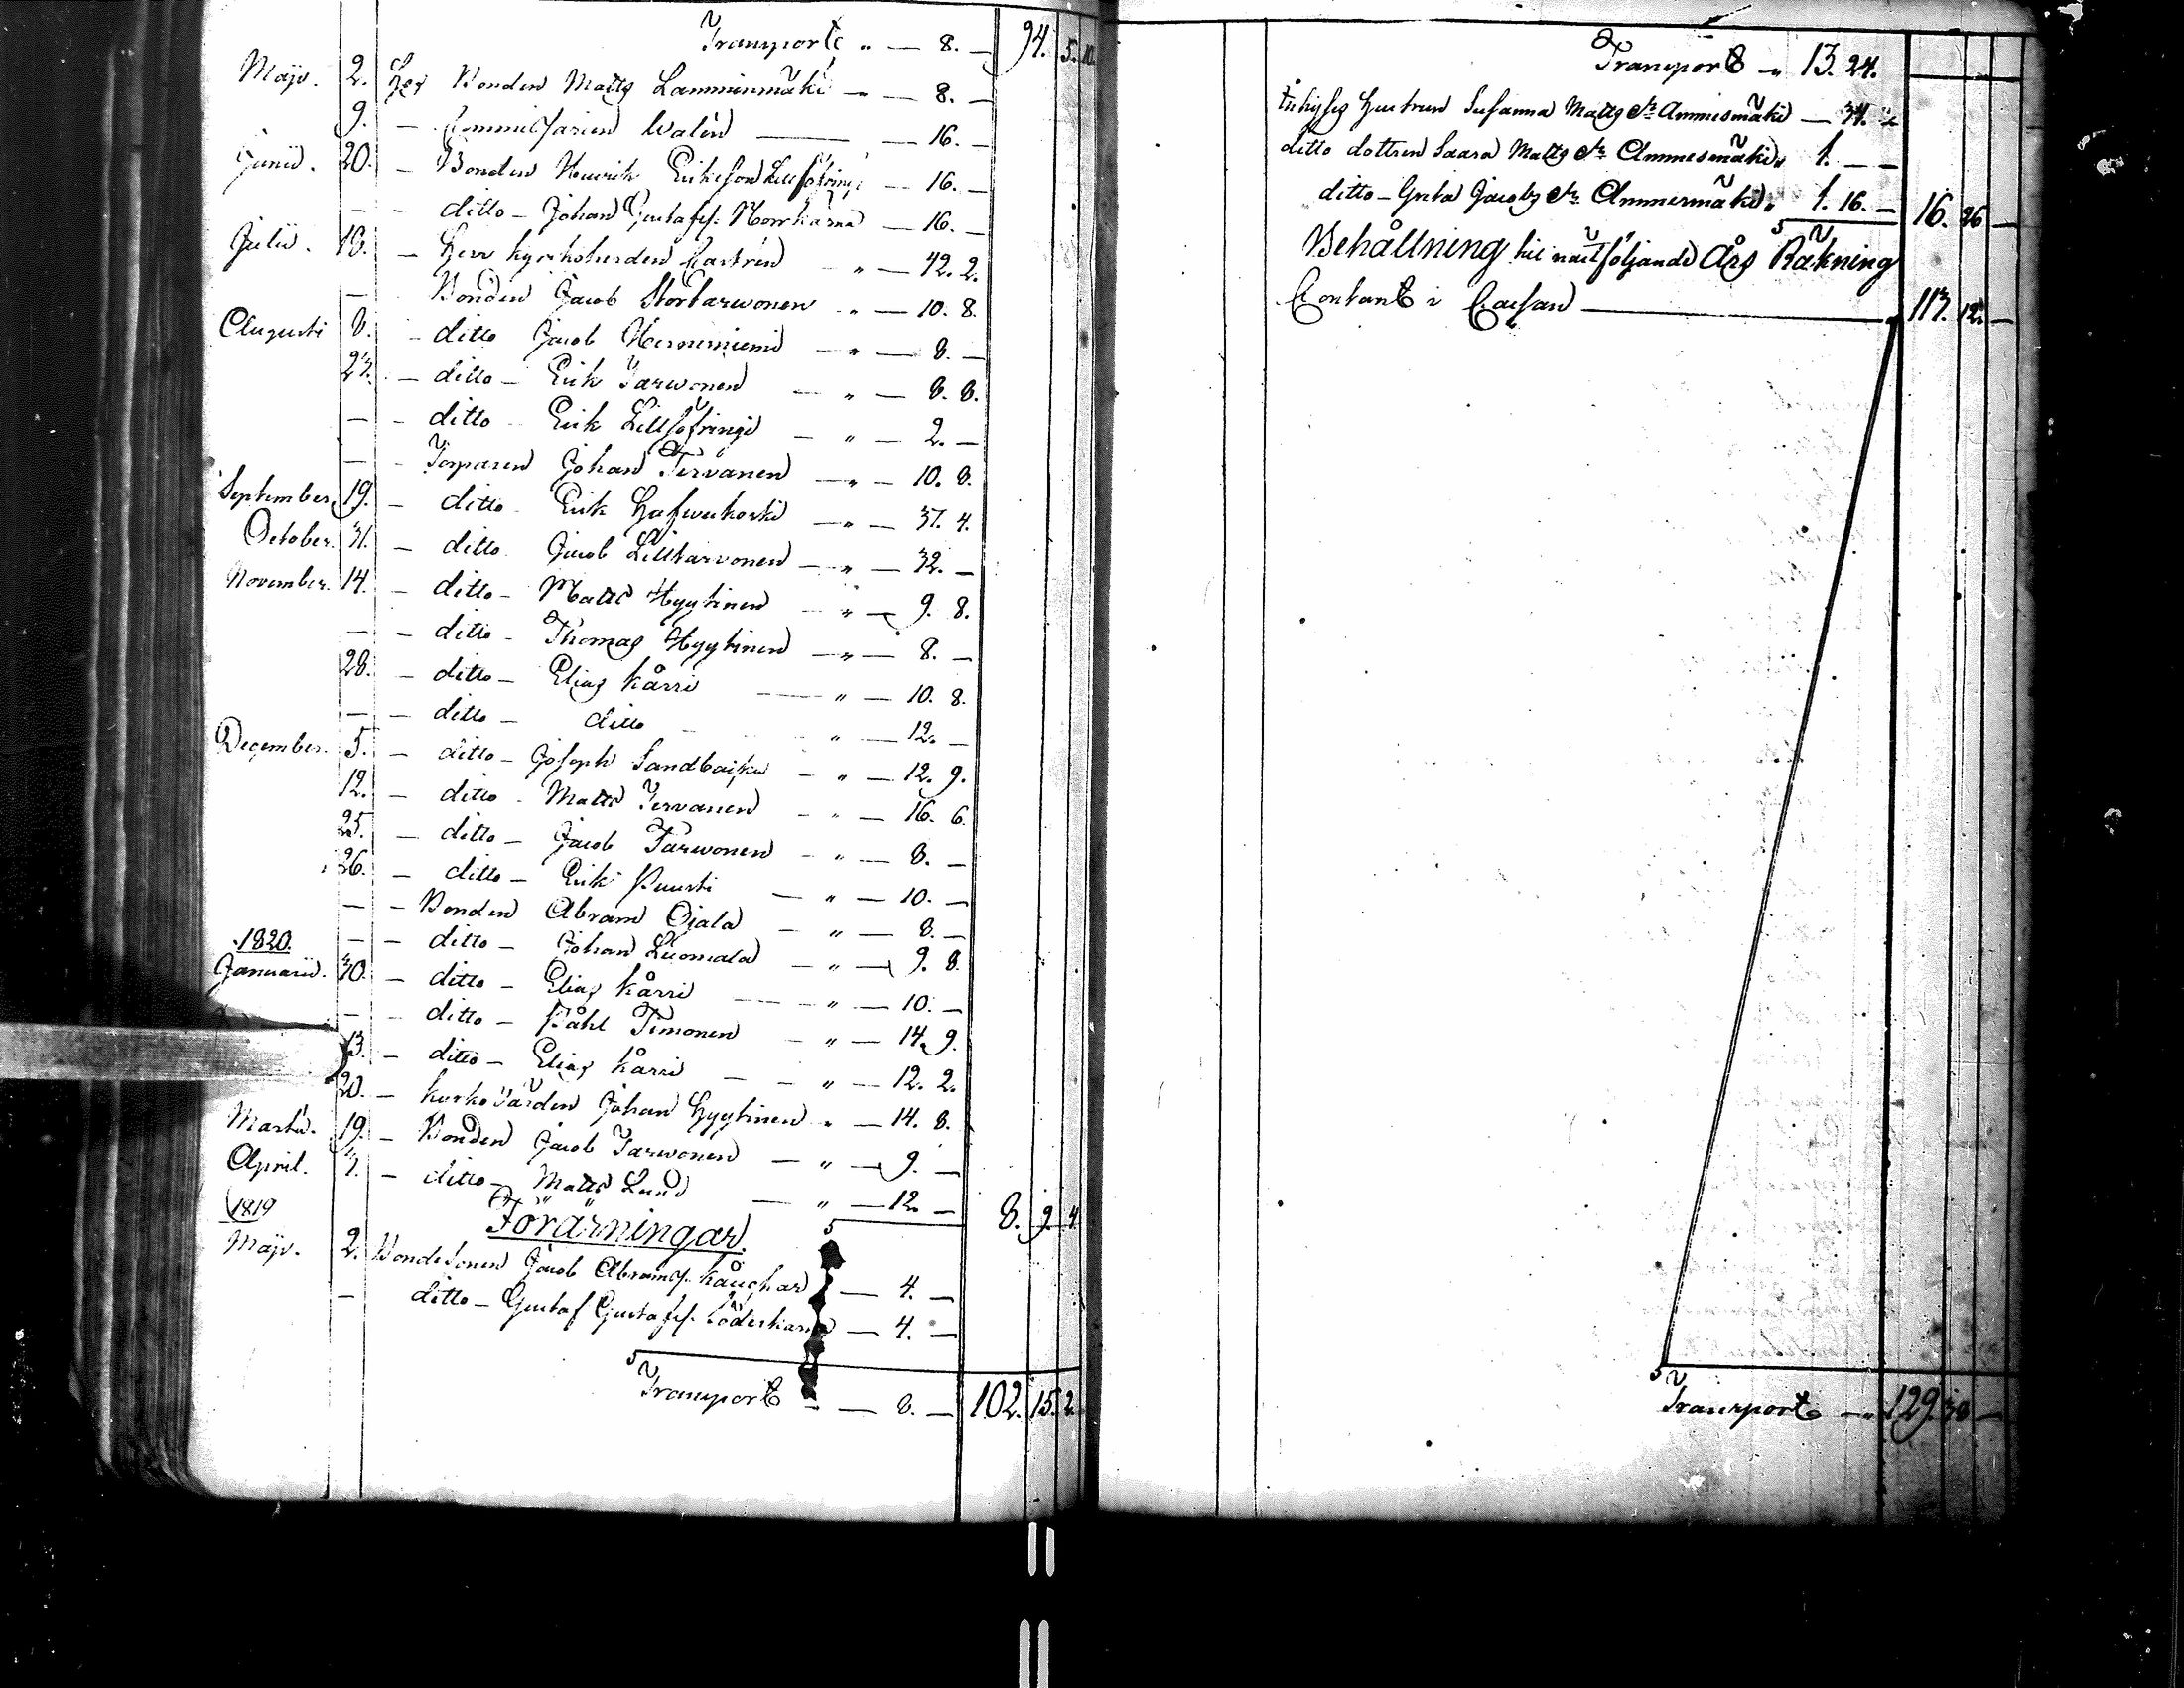 Transport " — 8. — 94. 5. 10.
Maji. 2. Hos Bonden Matts Lamminmäki — 8. —
9. — Commissarien Walén — 16. —
Junii. 20. — Bonden Henrik Eriksson Lillsöfring — 16. —
— — ditto — Johan Gustafss. Norrkarna — 16. —
Julii. 18. — Herr Kyrkoherden Castrén " — 42. 2.
— Bonden Jacob Stortarwonen " — 10. 8.
Augusti 8. — ditto Jacob Herneniemi — " — 8. —
23. — ditto — Erik Tarwonen — " — 8. 8.
— ditto Erik Lillsöfring — " — 2. —
— — Torparen Johan Tervanen — " — 10. 8.
September. 19. — ditto Erik Hafwukoski — " — 37. 4.
October. 31. — ditto Jacob Lilltarvonen — " — 32. —
November. 14. — ditto — Matts Hyytinen " — 9. 8.
— — ditto — Thomas Hyytinen — " — 8. —
28. — ditto — Elias Kårri — " — 10. 8.
— — ditto — ditto " — 12. —
December. 5. — ditto — Joseph Sandbacka — " — 12. 9.
12. — ditto — Matts Tervanen — " — 16. 6.
25. — ditto — Jacob Tarwonen — " — 8. —
26. — ditto — Erik Puusti — " — 10. —
— — Bonden Abram Ojala — " — 8. —
1820. — — ditto — Johan Luomala — " — 9. 8.
Januarii. 30. — ditto — Elias Kårri — " — 10. —
— — ditto — Påhl Timonen — " — 14. 9.
13. — ditto — Elias Kårri — " — 12. 2.
20. — Kyrko Värden Johan Hyytinen " — 14. 8.
Martii. 19. — Bonden Jacob Tarwonen — " — 9. —
April. 3. — ditto — Matts Lund — " — 12. — 8. 9. 4.
1819
Förärningar.
Maji. 2. Bondesonen Jacob Abramss. Kauchar — 4. —
— ditto — Gustaf Gustafss. Söderkarna — 4. —
Transport — — 8. — 102. 15. 2.
Transport " 13. 24.
Inhyses Hustrun Susanna Matts dr Ammesmäki — 34.
ditto dottren Saara Matts dr Ammesmäki " 1. — —
ditto — Greta Jacobs dr Ammesmäki " 1. 16. — 16. 26 —
Behållning til nästföljande Års Räkning
Contant i Cassan — 113. 12. —
Transport — " 129. 38 —